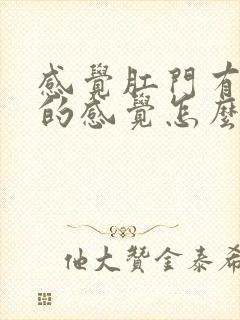 感覺肛門有
的感覺怎麼
他大贊金泰希